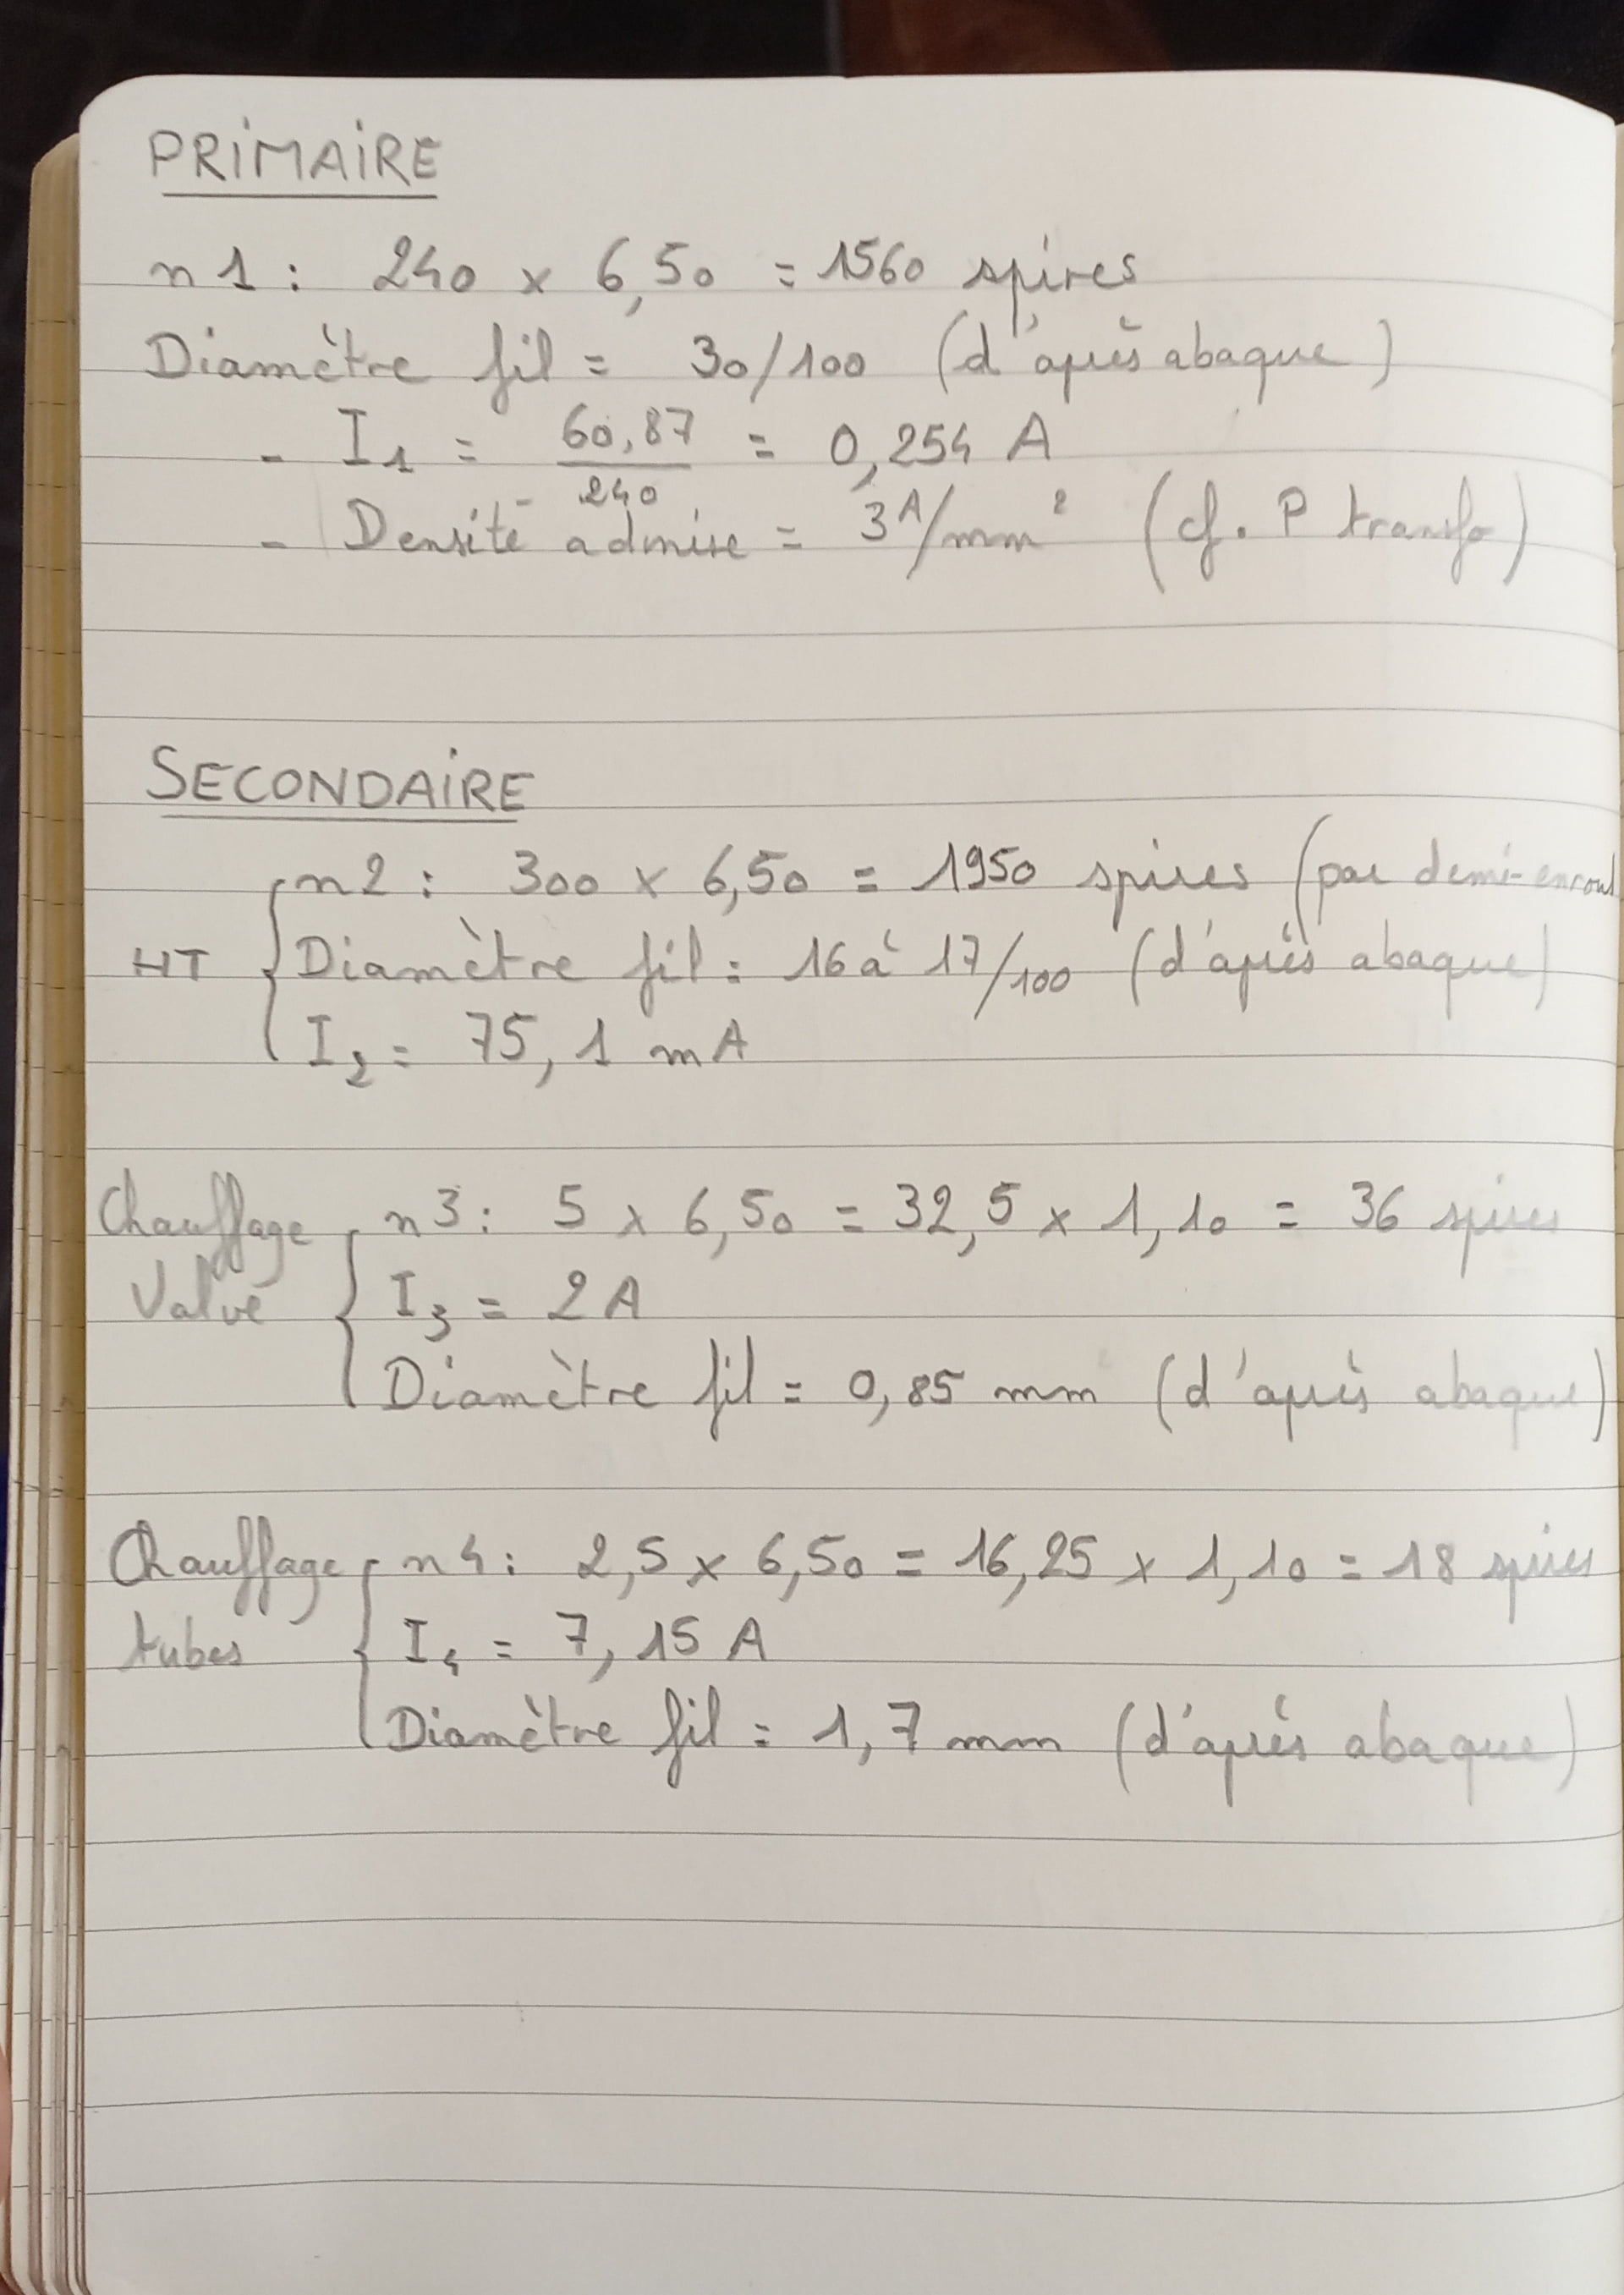 PRIMAIRE
n1 : 240 x 6,50 = 1560 spires
Diamètre fil = 30/100 (d'après abaque)
- I1 = 60,87/240 = 0,254 A
- Densité admise = 3 A/mm² (cf. P transfo)
SECONDAIRE
n2 : 300 x 6,50 = 1950 spires (par demi-enroul
HT Diamètre fil = 16 à 17/100 (d'après abaque)
I2 = 75,1 mA
Chauffage n3 : 5 x 6,50 = 32,5 x 1,10 = 36 spires
Valve I3 = 2 A
Diamètre fil = 0,85 mm (d'après abaque)
Chauffage n4 : 2,5 x 6,50 = 16,25 x 1,10 = 18 spires
tubes I4 = 7,15 A
Diamètre fil = 1,7 mm (d'après abaque)